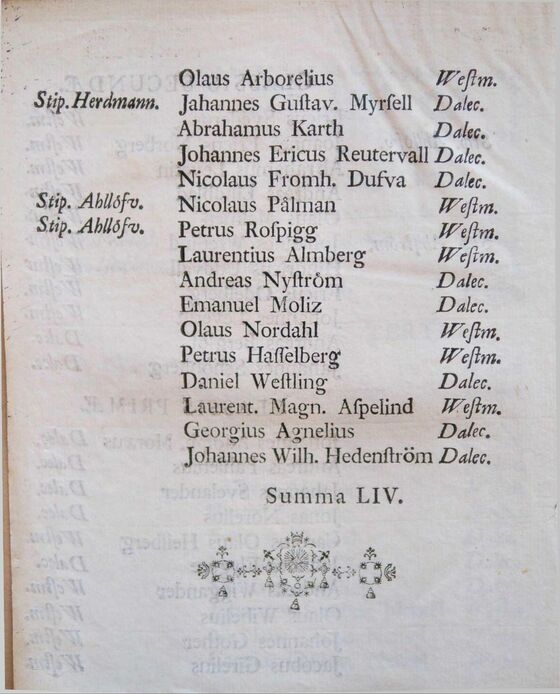 Olaus Arborelius Weſtm.
Stip. Herdmann. Jahannes Guſtav. Myrſell Dalec.
Abrahamus Karth Dalec.
Johannes Ericus Reutervall Dalec.
Nicolaus Fromh. Dufva Dalec.
Stip. Ahllôfv. Nicolaus Pålman Weſtm.
Stip. Ahllôfv. Petrus Roſpigg Weſtm.
Laurentius Almberg Weſtm.
Andreas Nyſtrôm Dalec.
Emanuel Moliz Dalec.
Olaus Nordahl Weſtm.
Petrus Haſſelberg Weſtm.
Daniel Weſtling Dalec.
Laurent. Magn. Aſpelind Weſtm.
Georgius Agnelius Dalec.
Johannes Wilh. Hedenſtröm Dalec.
Summa LIV.